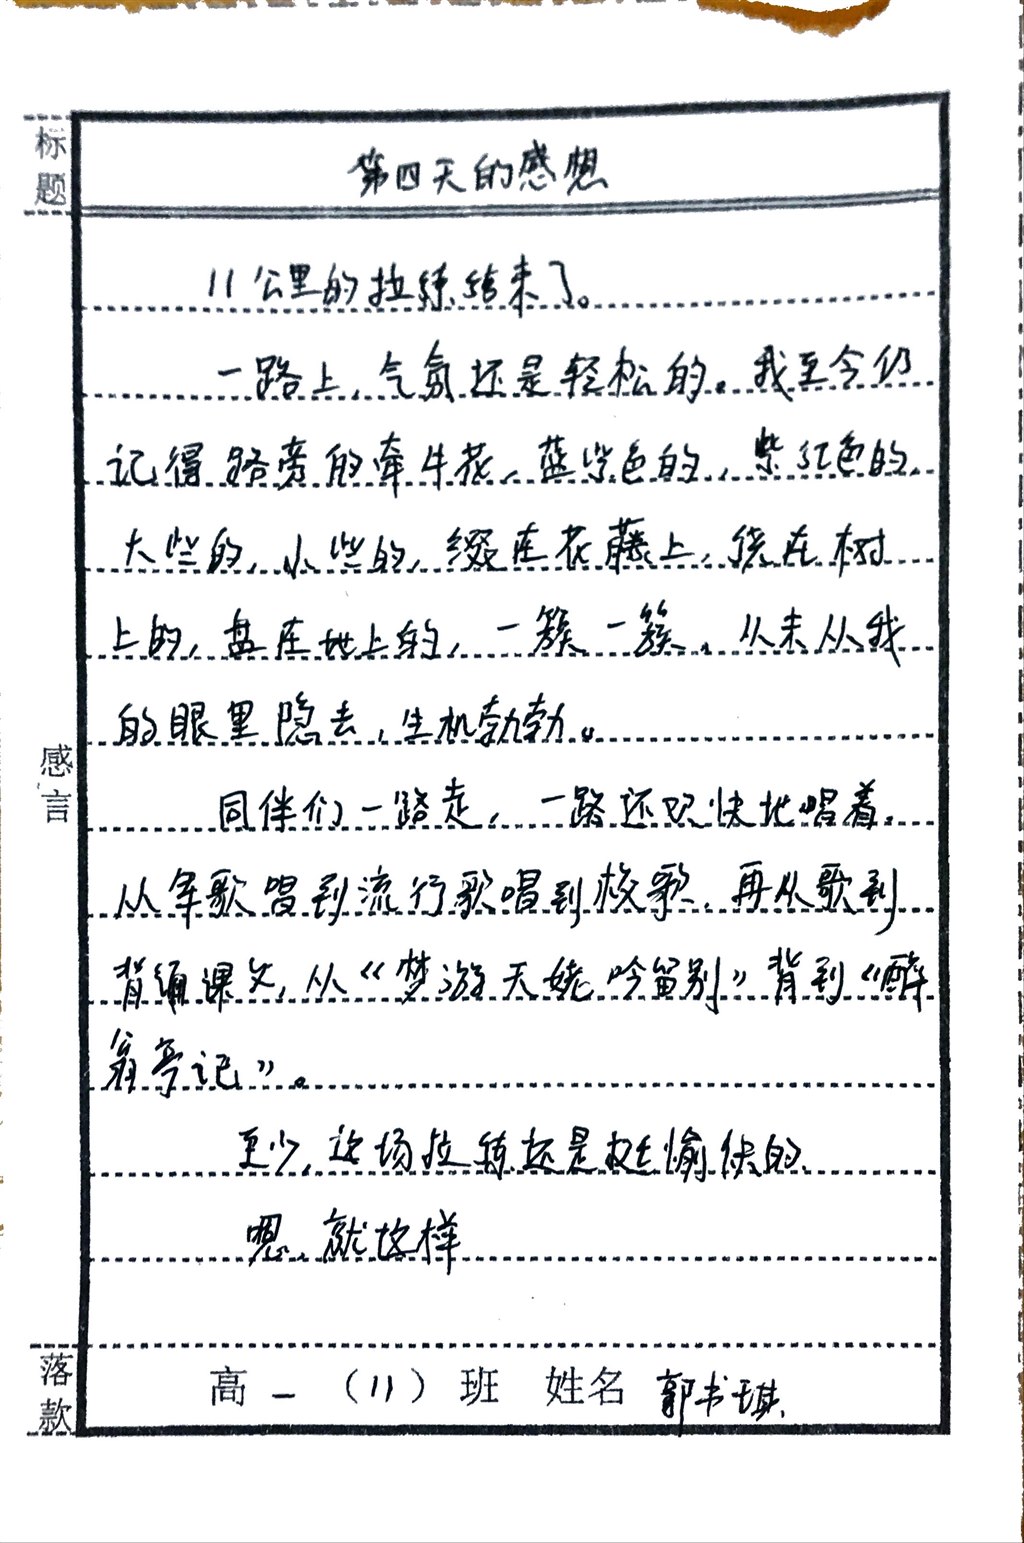 标题
第四天的感想
11公里的拉练结束了。
一路上，气氛还是轻松的。我至今仍
记得路旁的牵牛花，蓝紫色的，紫红色的，
大些的，小些的，缀在花藤上，绕在树
上的，盘在地上的，一簇一簇，从未从我
的眼里隐去，生机勃勃。
感言
同伴们一路走，一路还欢快地唱着，
从军歌唱到流行歌唱到校歌，再从歌到
背诵课文，从《梦游天姥吟留别》背到《醉
翁亭记》。
至少，这场拉练还是挺愉快的，
嗯，就这样
落款
高一（11）班 姓名 郭书琪